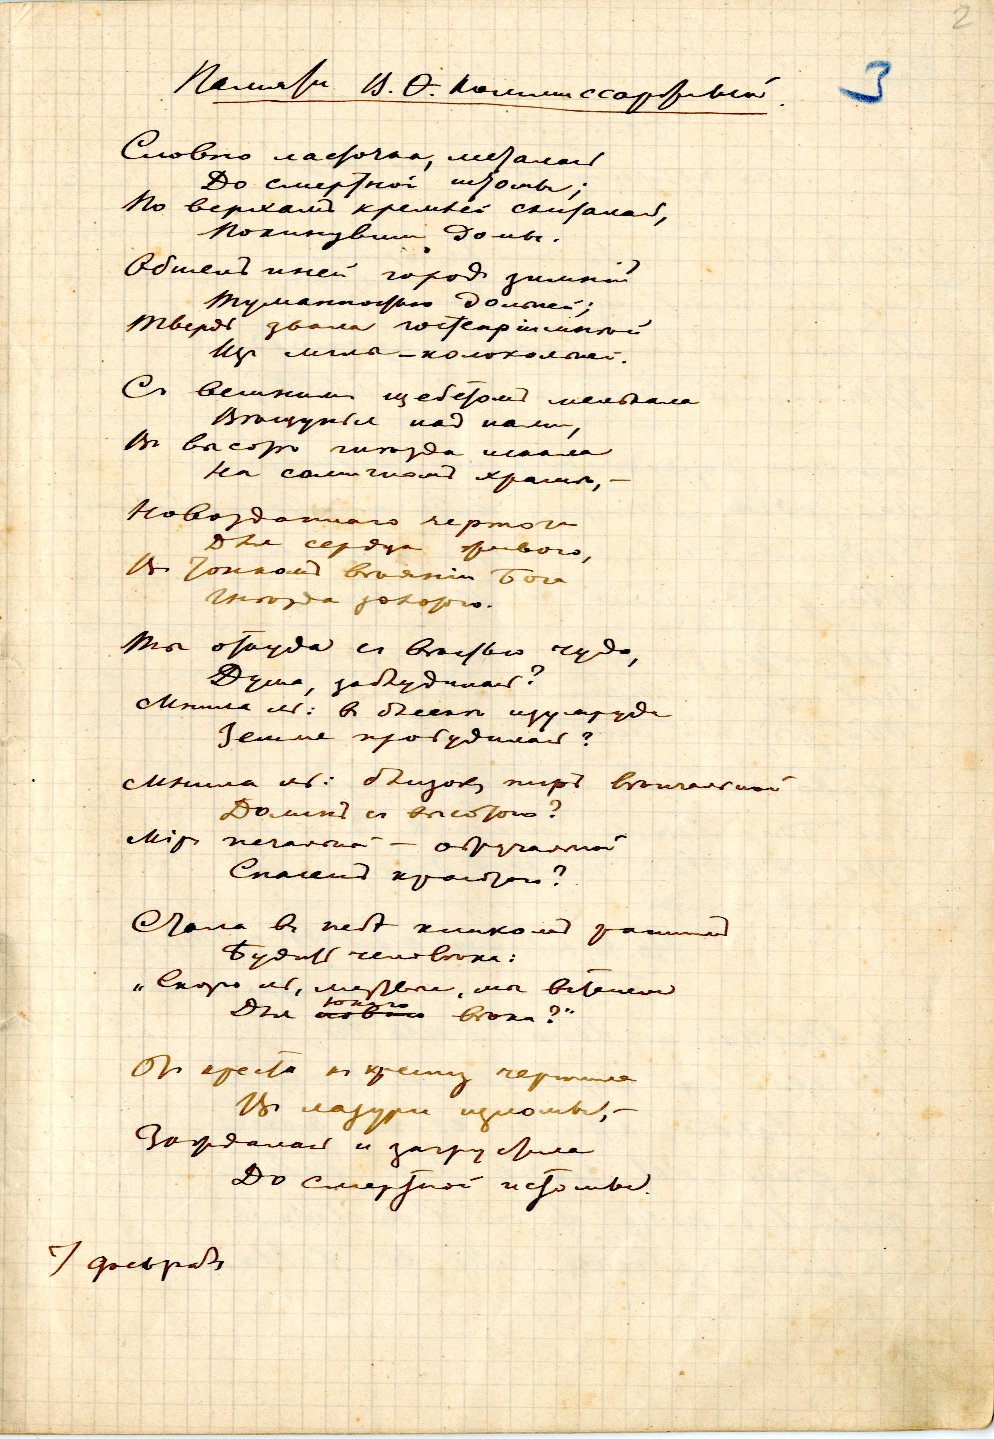 2
3
Памяти В. Ѳ. Коммиссаржевской.
Словно ласточка, металась
До смертной истомы;
По верхамъ кремлей скиталась,
Покинувши домы.
Облекъ иней городъ зимній
Туманностью дольней;
Твердь звала гостепріимнѣй
Изъ мглы – колоколенъ.
Съ вешнимъ щебетомъ мелькала
Вѣщуньей надъ нами,
Въ высотѣ гнѣзда искала
На солнечномъ храмѣ, –
Новозданнаго чертога
Для сердца живого,
Въ тонкомъ вѣяніи Бога
Гнѣзда золотого.
Ты откуда съ вѣстью чуда,
Душа, заблудилась?
Мнила ль: въ блескѣ изумруда
Земля пробудилась?
Мнила ль: близокъ пиръ вѣнчальный
Долинъ съ высотою?
Міръ печальный – обручальной
Спасенъ красотою?
Стала въ небѣ кликомъ раннимъ
Будить человѣка:
„Скоро ль, мертвые, мы встанемъ
Для новаго юнаго вѣка?"
Отъ креста къ кресту чертила
Въ лазури изломы, –
Зарыдала и загрустила
До смертной истомы.
7 февраля